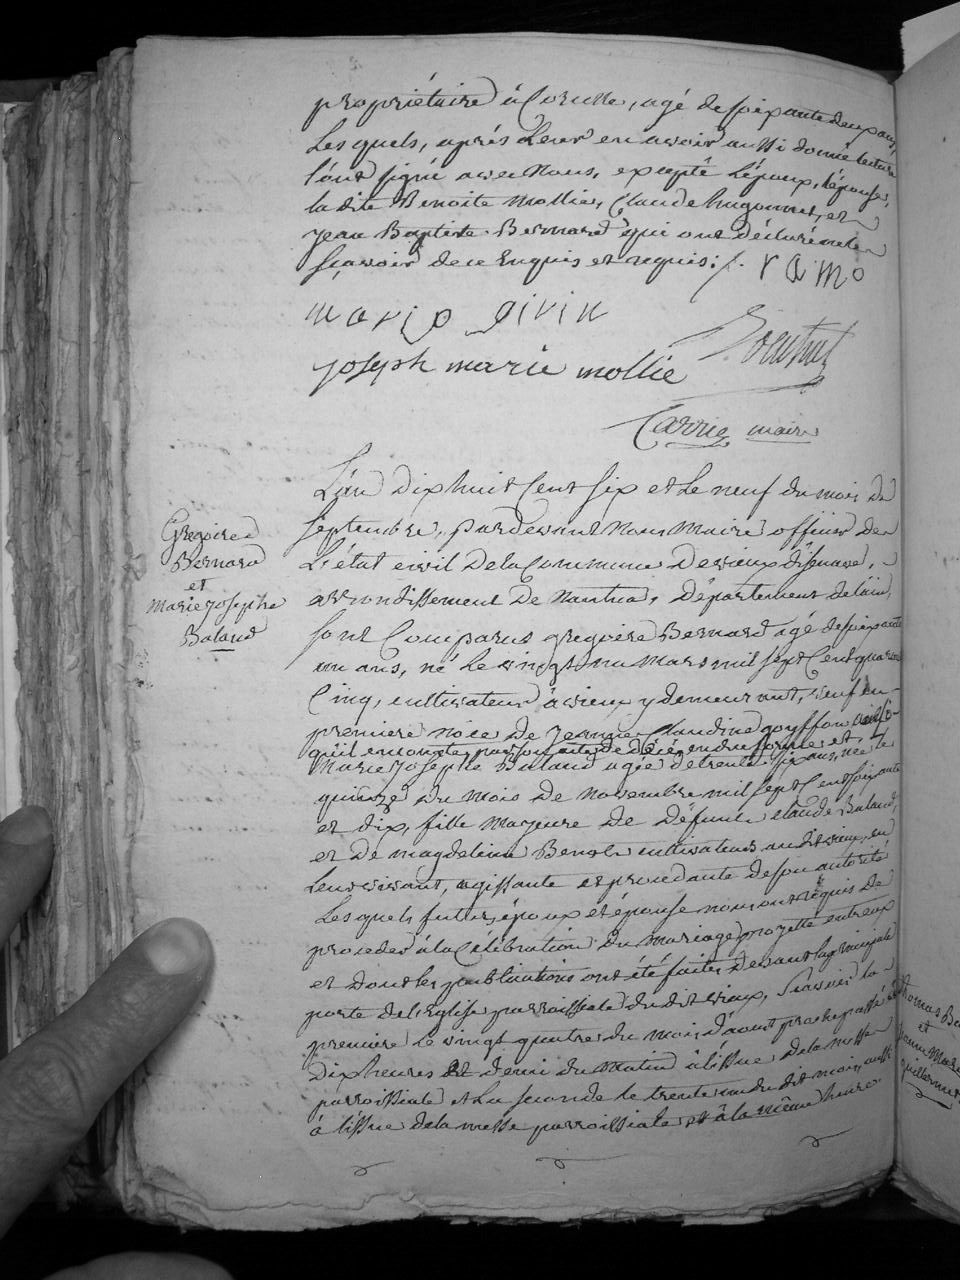 propriétaire à Corcelle, agé de soixante deux ans,
Lesquels, après Leur en avoir aussi donné lecture
l'ont signé avec Nous, excepté L'époux, L'épouse,
la dite Benoite Mollie, Claude hugonnet, et
jean Baptiste Bernard qui ont déclaré ne le
sçavoir de ce Enquis et requis ;/. ramo
marie givin
joseph marie mollie
Carrie maire
L'an dix huit Cent six et Le neuf du mois de
Septembre, pardevant Nous Maire officier de
L'état civil de la Commune de vieux d'isenave,
arrondissement De Nantua, Département de lain,
Gregoire
Bernard
et
Marie josephe
Baland
sont Comparus gregoire Bernard agé de soixante
un ans, né Le vingt un Mars mil sept Cent quarante
Cinq, cultivateur à vieux y demeurant, veuf en
premiere noce de jeanne Claudine goyffon ainsi
qu'il en conste par son acte de décès en due forme et
Marie josephe Baland agée de trente six ans, née le
quinze du Mois de Novembre mil sept Cent soixante
et dix, fille Majeure de Défunts Claude Baland,
et de magdeleine Benoit cultivateurs audit vieux, en
Leur vivant, agissante et procedante de son autorité
Lesquels futurs époux et épouse nous ont requis de
proceder à la Célébration du mariage projetté entreux
et dont les publications ont été faites devant la principale
porte de L'Eglise parroissiale du dit vieux, Sçavoir la
premiere le vingt quatre du mois d'aout proche passé à
Dix heures et demi du Matin à l'issue de la messe
parroissiale et La seconde le trente un du dit mois, aussi
à l'issue de la messe parroissiale et à la même heure
thomas
et
jeanne Marie
guillermet